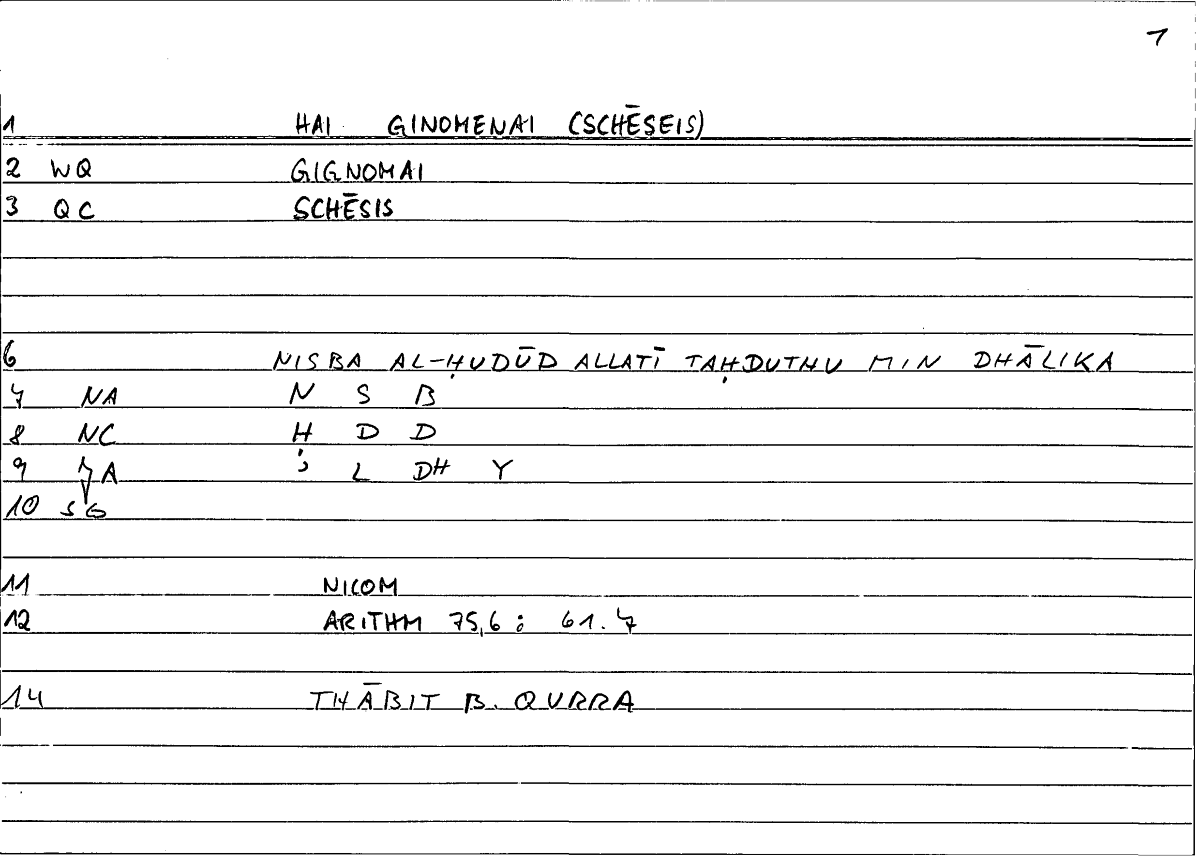 1
1 HAI GINOMENAI (SCHĒSEIS)
2 WQ GIGNOMAI
3 QC SCHĒSIS
6 NISBA AL-ḤUDŪD ALLATĪ TAḤDUTHU MIN DHĀLIKA
7 NA N S B
8 NC Ḥ D D
9 A ʾ L DH Y
10 SG
11 NICOM
12 ARITHM 75,6 : 61.7
14 THĀBIT B. QURRA